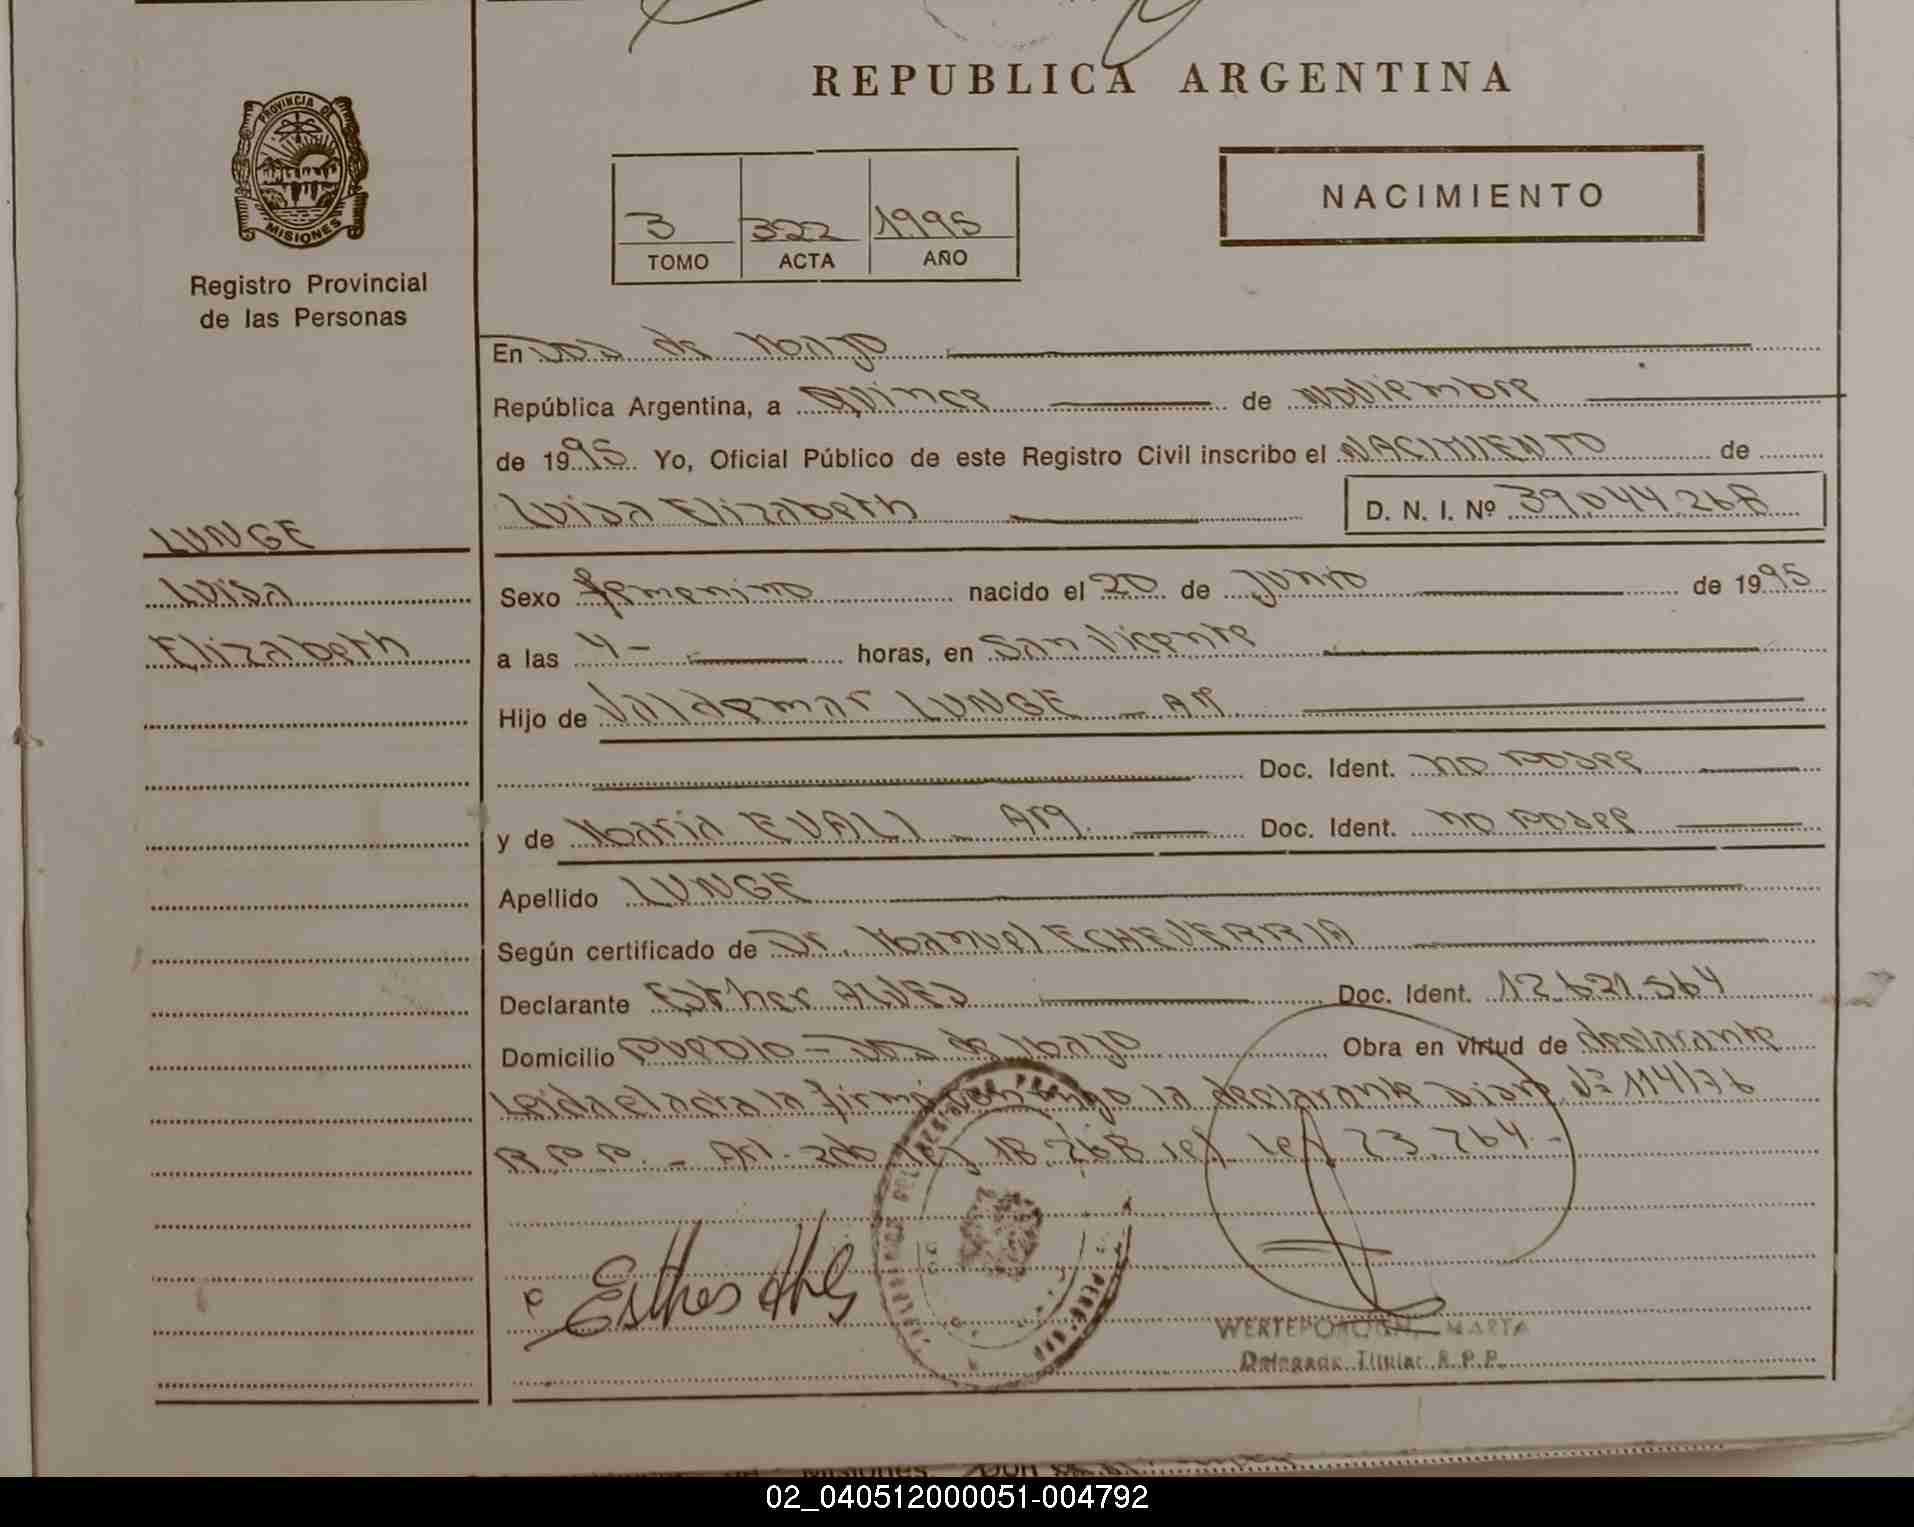 REPUBLICA ARGENTINA
PROVINCIA DE
MISIONES
Registro Provincial
de las Personas
3 322 1995
TOMO ACTA AÑO
NACIMIENTO
En Dos de Mayo
República Argentina, a Quince de Noviembre
de 1995. Yo, Oficial Público de este Registro Civil inscribo el NACIMIENTO de
Luisa Elizabeth D. N. I. Nº 39.044.268
LUNGE
Luisa
Elizabeth
Sexo femenino nacido el 20 de Junio de 1995
a las 4- horas, en San Vicente
Hijo de Valdemar LUNGE - Ar
Doc. Ident. no posee
y de Maria EVALI - Arg. Doc. Ident. no posee
Apellido LUNGE
Según certificado de Dr. Manuel ECHEVERRIA
Declarante Esther ALVES Doc. Ident. 12.621.564
Domicilio Pueblo - Dos de Mayo Obra en virtud de declarante
Leida el acta la firma la declarante Nº 114/76
R.P.P. - Art. ley 18.268 ley 23.264.-
Esther
MARTA
Delegada Titular R.P.P.
02_040512000051-004792